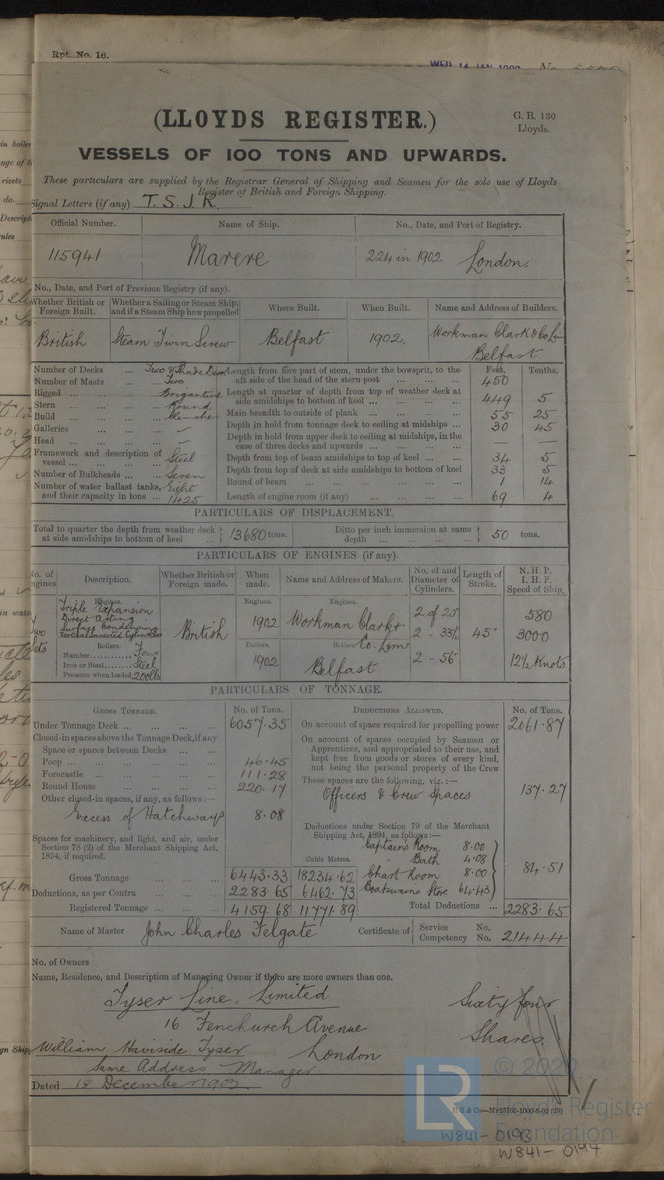 Rpt. No. 16.
WED. 14 JAN 1903
No.
(LLOYDS REGISTER.)
G. R. 130
Lloyds.
VESSELS OF 100 TONS AND UPWARDS.
These particulars are supplied by the Registrar General of Shipping and Seamen for the sole use of Lloyds
Register of British and Foreign Shipping.
Signal Letters (if any) T. S. J. R.
Official Number. Name of Ship. No., Date, and Port of Registry.
115941 Marere 224 in 1902 London.
No., Date, and Port of Previous Registry (if any).
Whether British or Foreign Built. Whether a Sailing or Steam Ship; and if a Steam Ship how propelled Where Built. When Built. Name and Address of Builders.
British Steam Twin Screw Belfast 1902. Workman Clark & Co Lim
Belfast.
Number of Decks ... Two & Shade Deck
Number of Masts ... Two
Rigged ... Brigantine
Stern ... Round
Build ... Clencher
Galleries ...
Head ...
Framework and description of vessel ... Steel
Number of Bulkheads ... Seven
Number of water ballast tanks, and their capacity in tons ... Eight 1425
Feet. Tenths.
Length from fore part of stem, under the bowsprit, to the aft side of the head of the stern post ... 450
Length at quarter of depth from top of weather deck at side amidships to bottom of keel ... 449 5
Main breadth to outside of plank ... 55 25
Depth in hold from tonnage deck to ceiling at midships ... 30 45
Depth in hold from upper deck to ceiling at midships, in the case of three decks and upwards ... — —
Depth from top of beam amidships to top of keel ... 34 5
Depth from top of deck at side amidships to bottom of keel 33 5
Round of beam ... 1 14
Length of engine room (if any) ... 69 4
PARTICULARS OF DISPLACEMENT.
Total to quarter the depth from weather deck at side amidships to bottom of keel ... 13680 tons. Ditto per inch immersion at same depth ... 50 tons.
PARTICULARS OF ENGINES (if any).
No. of Engines. Description. Whether British or Foreign made. When made. Name and Address of Makers. No. of and Diameter of Cylinders. Length of Stroke. N. H. P. I. H. P. Speed of Ship.
Engines. Engines. Engines.
Triple Expansion
Direct Acting
Surface Condensing
Vertical Inverted Cylinders
Two British 1902 Workman Clark & Co. Lim 2 of 20" 580
2 - 33½ 45" 3000
Boilers. Boilers. Boilers.
Number ... Four
Iron or Steel ... Steel 1902 Belfast 2 - 56" 12½ Knots
Pressure when loaded 200 lbs
PARTICULARS OF TONNAGE.
GROSS TONNAGE. No. of Tons. DEDUCTIONS ALLOWED. No. of Tons.
Under Tonnage Deck ... 6057.35
Closed-in spaces above the Tonnage Deck, if any
Space or spaces between Decks ...
Poop ... 46.45
Forecastle ... 111.28
Round House ... 220.17
Other closed-in spaces, if any, as follows :—
Excess of Hatchways 8.08
Spaces for machinery, and light, and air, under Section 78 (2) of the Merchant Shipping Act, 1894, if required.
Cubic Metres.
Gross Tonnage ... 6443.33 18234.62
Deductions, as per Contra ... 2283.65 6462.73
Registered Tonnage ... 4159.68 11771.89
On account of space required for propelling power 2061.87
On account of spaces occupied by Seamen or Apprentices, and appropriated to their use, and kept free from goods or stores of every kind, not being the personal property of the Crew
These spaces are the following, viz. :—
Officers & Crew Spaces 137.27
Deductions under Section 79 of the Merchant Shipping Act, 1894, as follows:—
Captains Room 8.00
" Bath 4.08
Chart Room 8.00
Boatswains Store 64.43
84.51
Total Deductions ... 2283.65
Name of Master John Charles Felgate Certificate of Service No. Competency No. 21444
No. of Owners
Name, Residence, and Description of Managing Owner if there are more owners than one.
Tyser Line, Limited Sixty four
16 Fenchurch Avenue Shares
London
William Haviside Tyser
Same Address Manager.
Dated 18 December 1902.
© 202
Lloyd's Register
Foundation
W841-0193
W841-0194